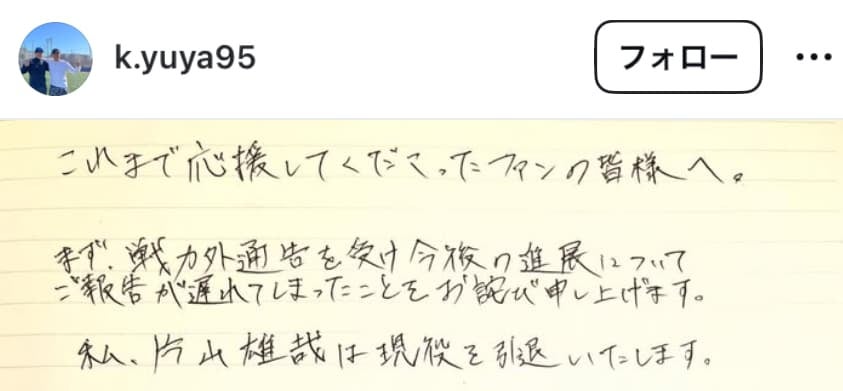 k.yuya95
フォロー
これまで応援してくださったファンの皆様へ。
まず、戦力外通告を受け今後の進展について
ご報告が遅れてしまったことをお詫び申し上げます。
私、片山雄哉は現役を引退いたします。